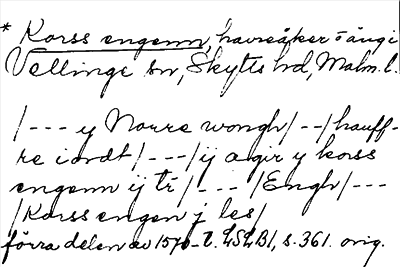 * Korss engenn, havreåker o äng i
Vellinge sn, Skytts hd, Malm. l.
/--- y Norre wongh/--/hauff-
re iordt/---/ij agir y korss
engenn ij tr/---/Engh/---
/Korss engen j les/
förra delen av 1570-t. LSLB1, s. 361. orig.